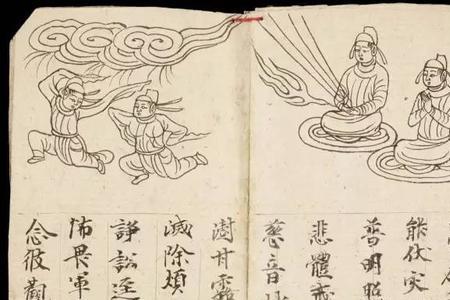 能伏灾
普明照
悲體戒
慈意
澍甘露
滅除煩
諍訟逕
怖畏軍
念彼觀